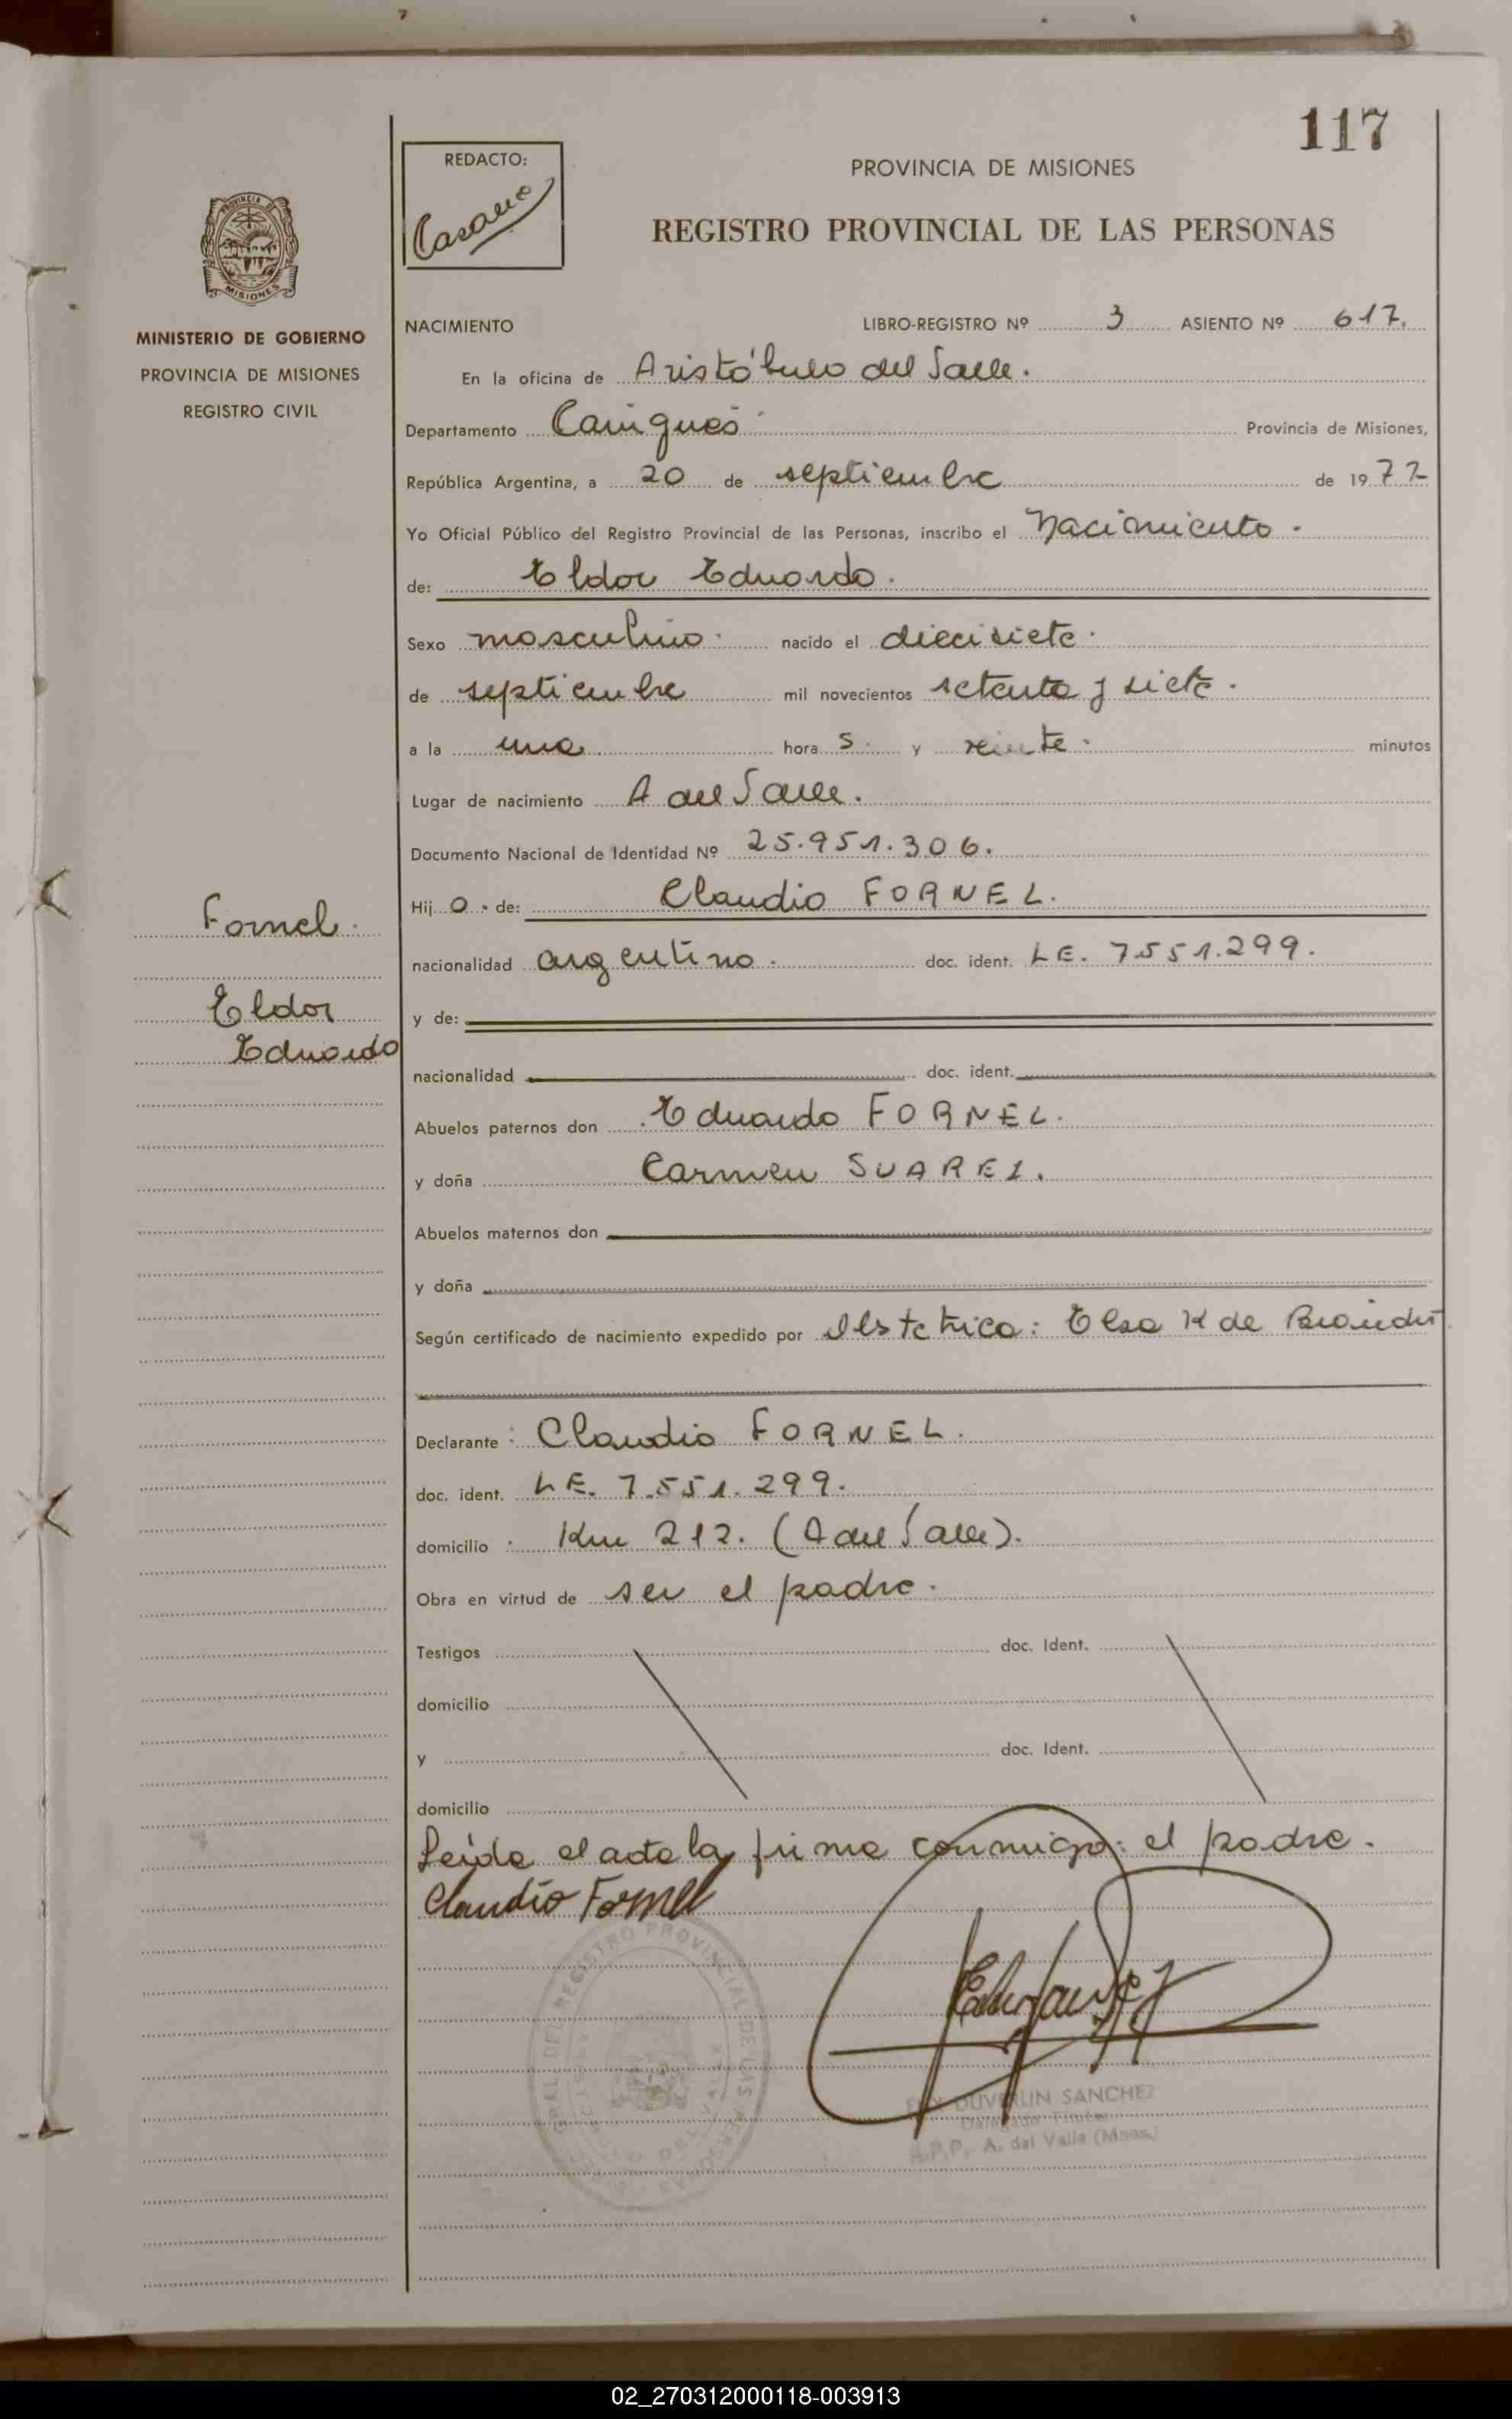 117
REDACTO:
PROVINCIA DE MISIONES
REGISTRO PROVINCIAL DE LAS PERSONAS
PROVINCIA DE
MISIONES
MINISTERIO DE GOBIERNO
PROVINCIA DE MISIONES
REGISTRO CIVIL
NACIMIENTO LIBRO-REGISTRO Nº 3 ASIENTO Nº 617.
En la oficina de Aristóbulo del Valle.
Departamento Cainguás Provincia de Misiones,
República Argentina, a 20 de septiembre de 1977
Yo Oficial Público del Registro Provincial de las Personas, inscribo el Nacimiento.
de: Eldor Eduardo.
Sexo masculino. nacido el diecisiete.
de septiembre mil novecientos setenta y siete.
a la una hora s. y veinte. minutos
Lugar de nacimiento A del Valle.
Documento Nacional de Identidad Nº 25.951.306.
Hij o. de: Claudio FORNEL.
Fornel.
nacionalidad argentino. doc. ident. LE. 7.551.299.
Eldor
y de:
Eduardo
nacionalidad doc. ident.
Abuelos paternos don Eduardo FORNEL.
y doña Carmen SUAREZ.
Abuelos maternos don
y doña
Según certificado de nacimiento expedido por Obstetrica: Elsa K de
Declarante: Claudio FORNEL.
doc. ident. LE. 7.551.299.
domicilio: Km 212. (A del Valle).
Obra en virtud de ser el padre.
Testigos doc. Ident.
domicilio
y doc. Ident.
domicilio
Leída el acta la firma conmigo: el padre.
Claudio Fornel
DEL REGISTRO PROVINCIAL DE LAS PERSONAS
DUVERLIN SANCHEZ
Delegado Titular
R.P.P. A. del Valle (Mnes.)
02_270312000118-003913